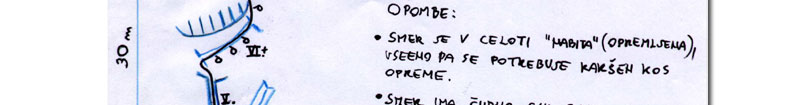 30 m
VI+
V.
OPOMBE:
• SMER JE V CELOTI "NABITA" (OPREMLJENA),
VSEENO PA SE POTREBUJE KAKŠEN KOS
OPREME.
• SMER IMA